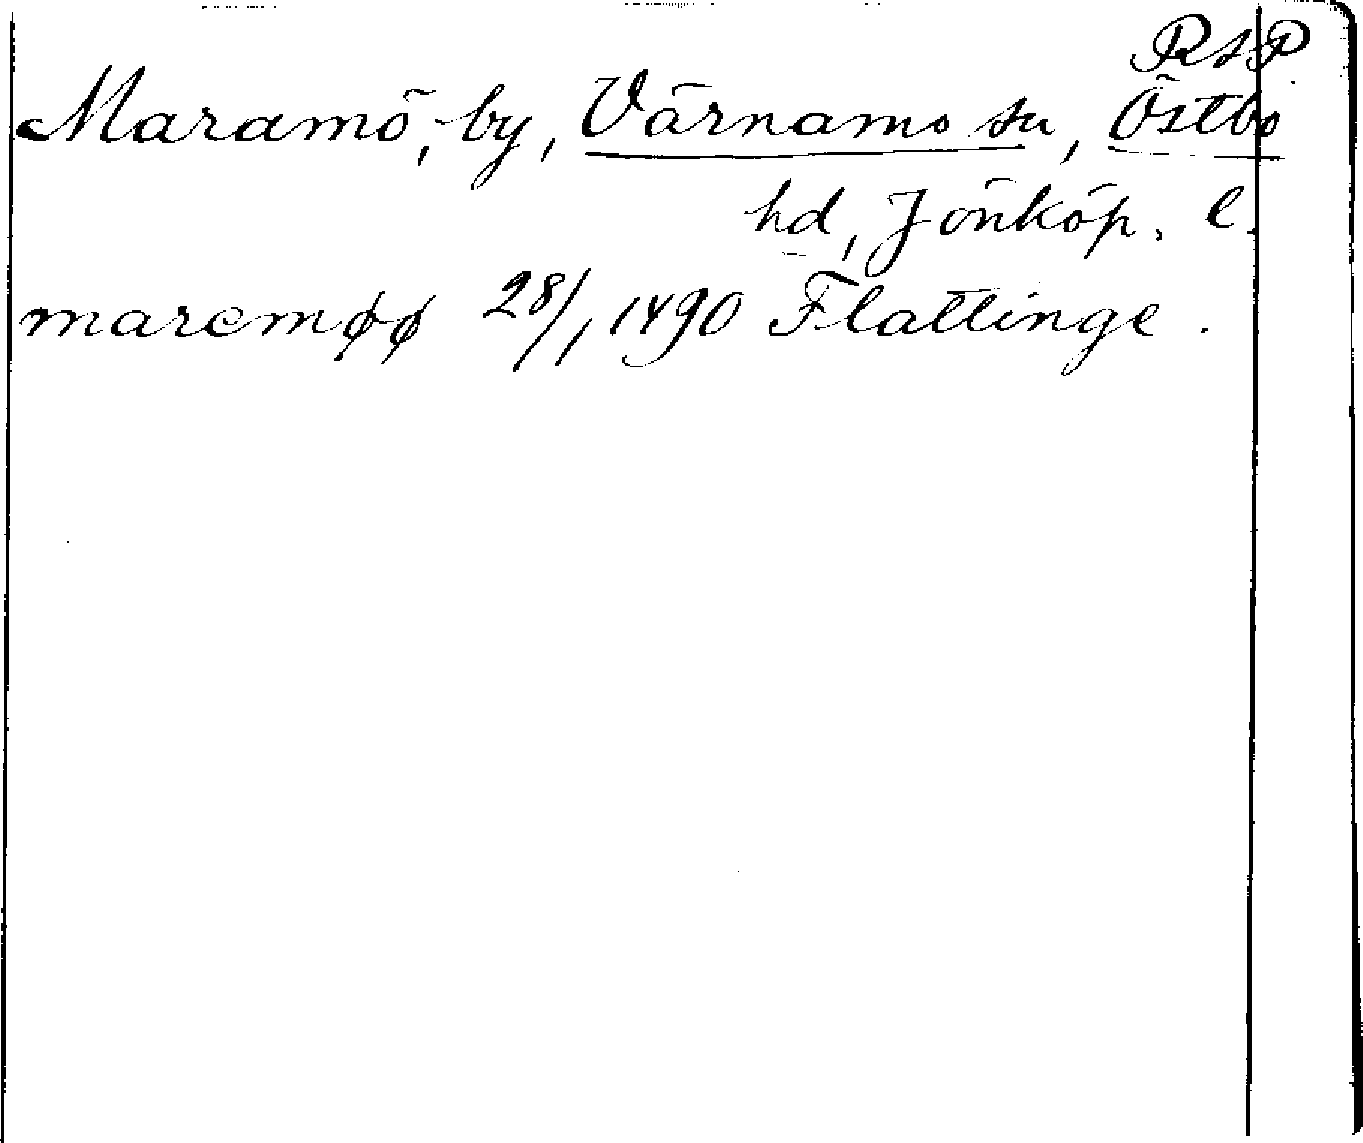 RAP
Maramö, by, Värnamo sn, Östbo
hd, Jönköp. l.
maremøø 28/1 1490 Flattinge.